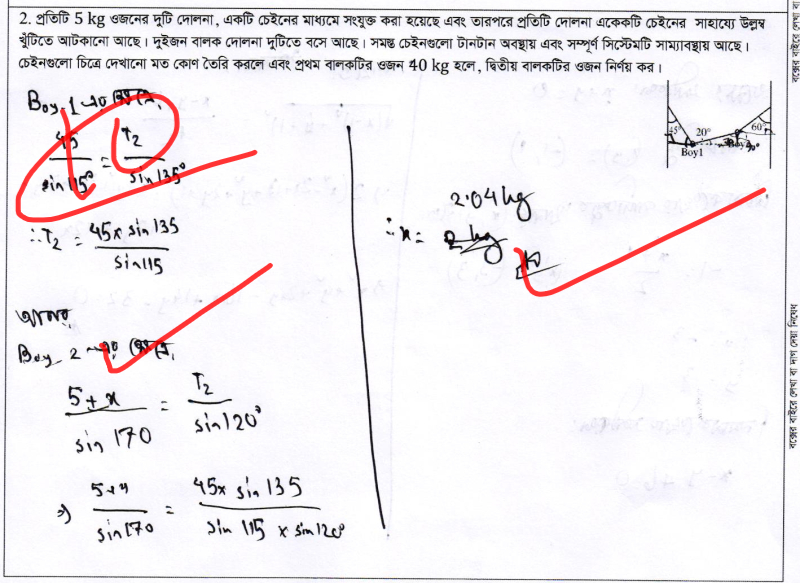 2. প্রতিটি 5 kg ওজনের দুটি দোলনা, একটি চেইনের মাধ্যমে সংযুক্ত করা হয়েছে এবং তারপরে প্রতিটি দোলনা একেকটি চেইনের সাহায্যে উল্লম্ব
খুঁটিতে আটকানো আছে। দুইজন বালক দোলনা দুটিতে বসে আছে। সমস্ত চেইনগুলো টানটান অবস্থায় এবং সম্পূর্ণ সিস্টেমটি সাম্যাবস্থায় আছে।
চেইনগুলো চিত্রে দেখানো মত কোণ তৈরি করলে এবং প্রথম বালকটির ওজন 40 kg হলে, দ্বিতীয় বালকটির ওজন নির্ণয় কর।
45° 20° 60°
Boy1
Boy 1 এর ক্ষেত্রে
45 / sin 115° = T₂ / sin 135°
∴ T₂ = 45 x sin 135 / sin 115
আবার
Boy 2 এর ক্ষেত্রে,
5 + x / sin 170 = T₂ / sin 120°
⇒ 5 + x / sin 170 = 45 x sin 135 / sin 115 x sin 120°
2.04 kg
∴ x = 2 kg
বক্সের বাইরে লেখা বা দাগ দেয়া নিষেধ